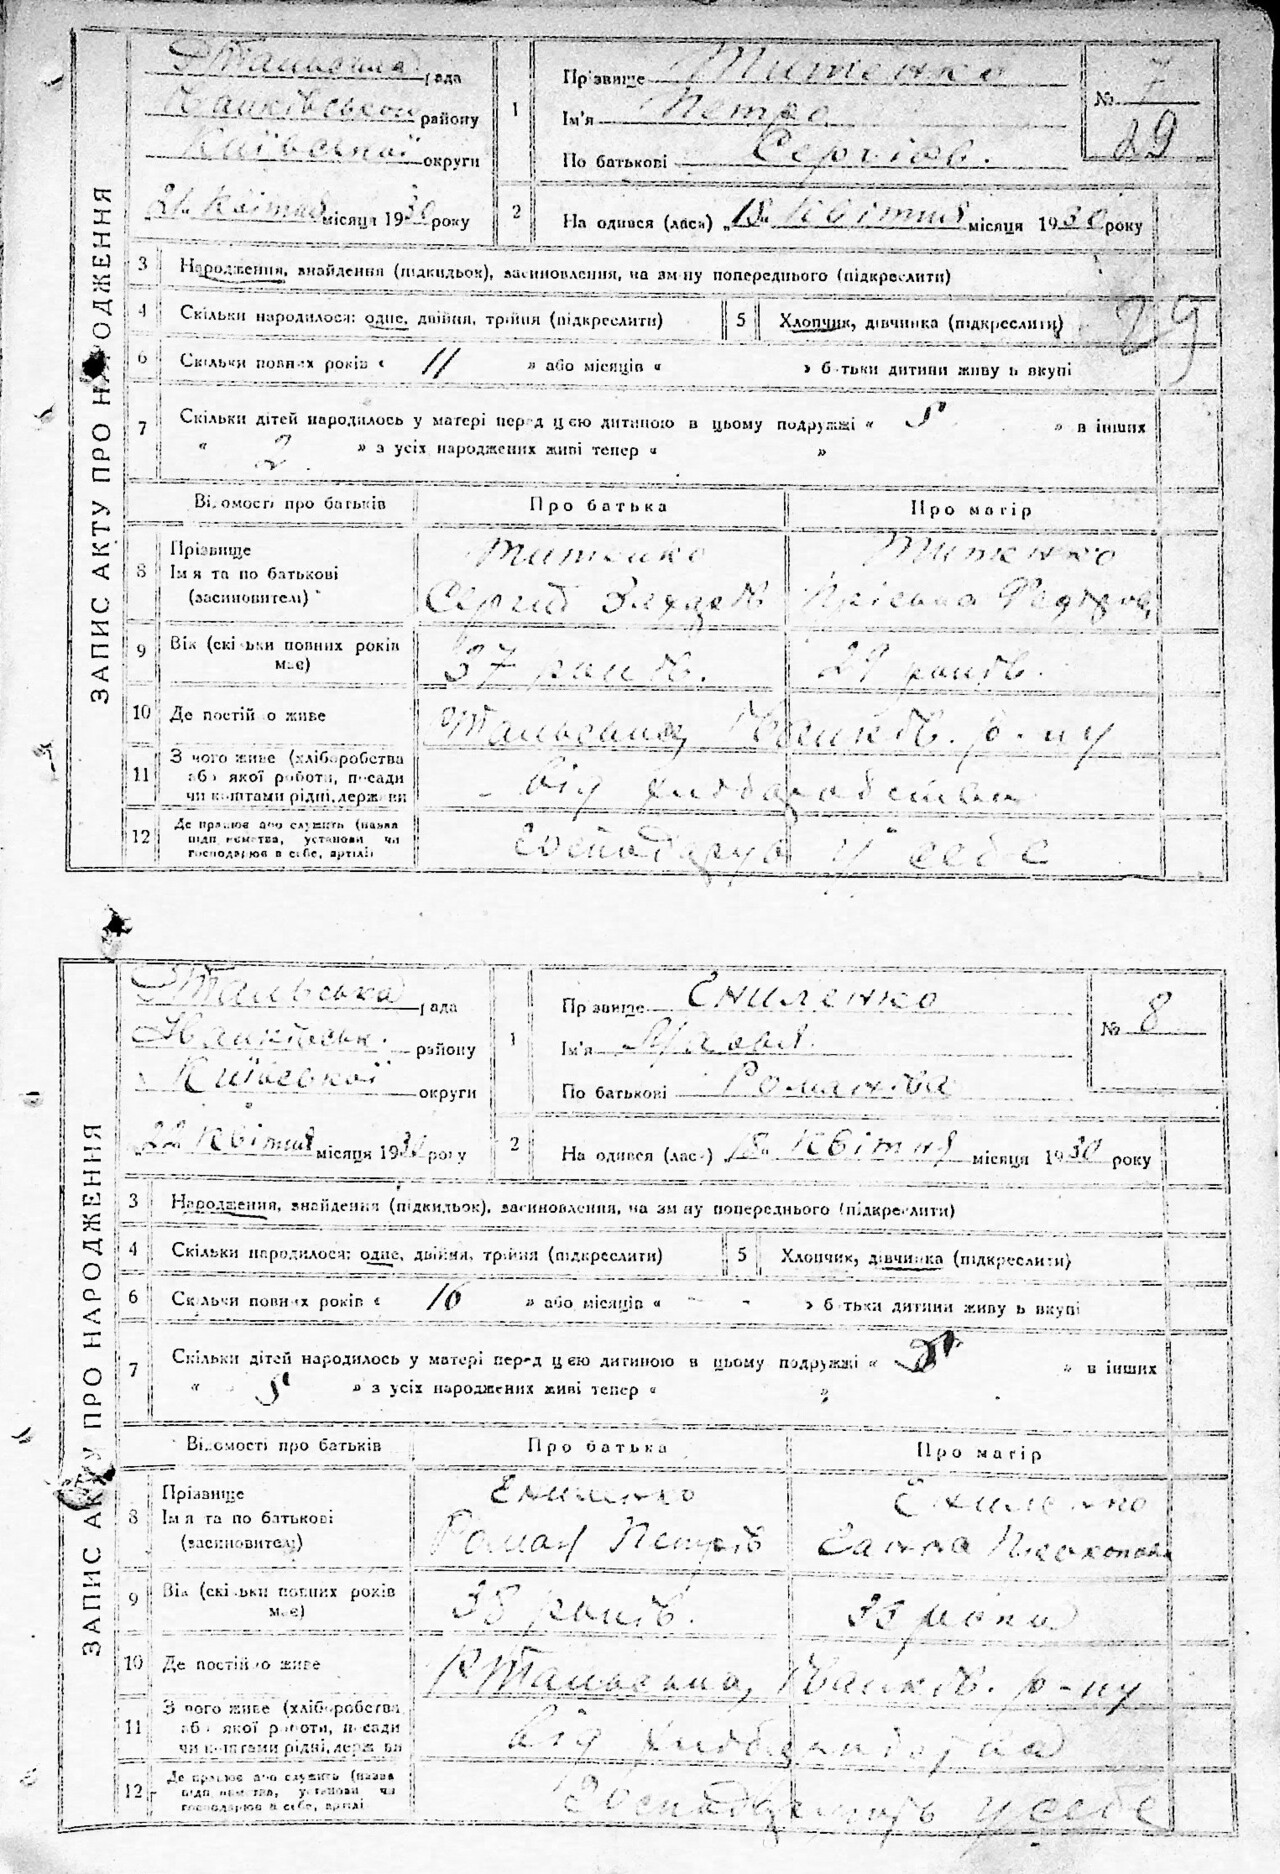 ЗАПИС АКТУ ПРО НАРОДЖЕННЯ
рада
району
Київської округи
21 Квітня місяця 1930 року
1
Прізвище Титенко
Ім'я Петро
По батькові Сергіїв.
№ 7
29
2
Народився (лася) „18“ Квітня місяця 1930 року
3 Народження, знайдення (підкидьок), засиновлення, на зміну попереднього (підкреслити)
4 Скільки народилося: одне, двійня, трійня (підкреслити)
5 Хлопчик, дівчинка (підкреслити)
29
6 Скільки повних років « 11 » або місяців « » батьки дитини живуть вкупі
7 Скільки дітей народилось у матері перед цією дитиною в цьому подружжі « 5 » в інших
« 2 » з усіх народжених живі тепер « »
Відомості про батьків Про батька Про матір
8 Прізвище Титенко Титенко
Ім'я та по батькові Сергій
(засиновителі)
9 Вік (скільки повних років має) 37 років. 29 років.
10 Де постійно живе р-ну
11 З чого живе (хліборобства або якої роботи, посади чи коштами рідні, держави від хліборобства
12 Де працює або служить (назва підприємства, установи чи господарює в себе, артілі) Господарює у себе
ЗАПИС АКТУ ПРО НАРОДЖЕННЯ
рада
району
Київської округи
22 Квітня місяця 1930 року
1
Прізвище Єниленко
Ім'я
По батькові Романівна
№ 8
2
Народився (лася) „18“ Квітня місяця 1930 року
3 Народження, знайдення (підкидьок), засиновлення, на зміну попереднього (підкреслити)
4 Скільки народилося: одне, двійня, трійня (підкреслити)
5 Хлопчик, дівчинка (підкреслити)
6 Скільки повних років « 16 » або місяців « - - » батьки дитини живуть вкупі
7 Скільки дітей народилось у матері перед цією дитиною в цьому подружжі « » в інших
« 5 » з усіх народжених живі тепер « »
Відомості про батьків Про батька Про матір
8 Прізвище Єниленко Єниленко
Ім'я та по батькові Роман Петрів Ганна
(засиновителі)
9 Вік (скільки повних років має) 38 років. 33 роки
10 Де постійно живе р-ну
11 З чого живе (хліборобства або якої роботи, посади чи коштами рідні, держави від
12 Де працює або служить (назва підприємства, установи чи господарює в себе, артілі у себе